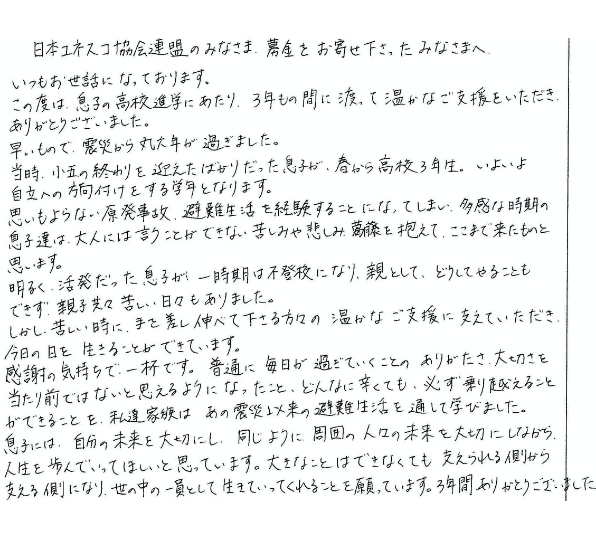 日本ユネスコ協会連盟のみなさま、募金をお寄せ下さったみなさまへ
いつもお世話になっております。
この度は、息子の高校進学にあたり、3年もの間に渡って温かなご支援をいただき、
ありがとうございました。
早いもので、震災から丸六年が過ぎました。
当時、小五の終わりを迎えたばかりだった息子が、春から高校3年生。いよいよ
自立への方向付けをする学年となります。
思いもよらない原発事故、避難生活を経験することになってしまい、多感な時期の
息子達は、大人には言うことができない苦しみや悲しみ、葛藤を抱えて、ここまで来たものと
思います。
明るく、活発だった息子が、一時期は不登校になり、親として、どうしてやることも
できず、親子共々苦しい日々もありました。
しかし、苦しい時に、手を差し伸べて下さる方々の温かなご支援に支えていただき、
今日の日を生きることができています。
感謝の気持ちで、一杯です。普通に毎日が過ぎていくことのありがたさ、大切さを
当たり前ではないと思えるようになったこと、どんなに辛くても、必ず乗り越えること
ができることを、私達家族はあの震災以来の避難生活を通して学びました。
息子には、自分の未来を大切にし、同じように、周囲の人々の未来を大切にしながら、
人生を歩んでいってほしいと思っています。大きなことはできなくても支えられる側から
支える側になり、世の中の一員として生きていってくれることを願っています。3年間ありがとうございました